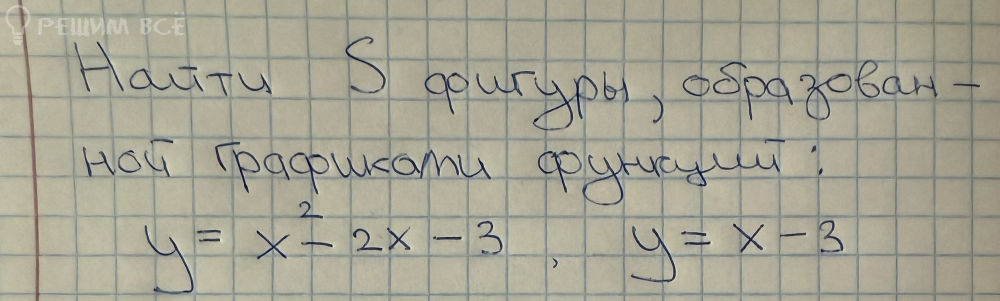 РЕШИМ ВСЁ
Найти S фигуры, образован-
ной графиками функций:
y = x² - 2x - 3, y = x - 3